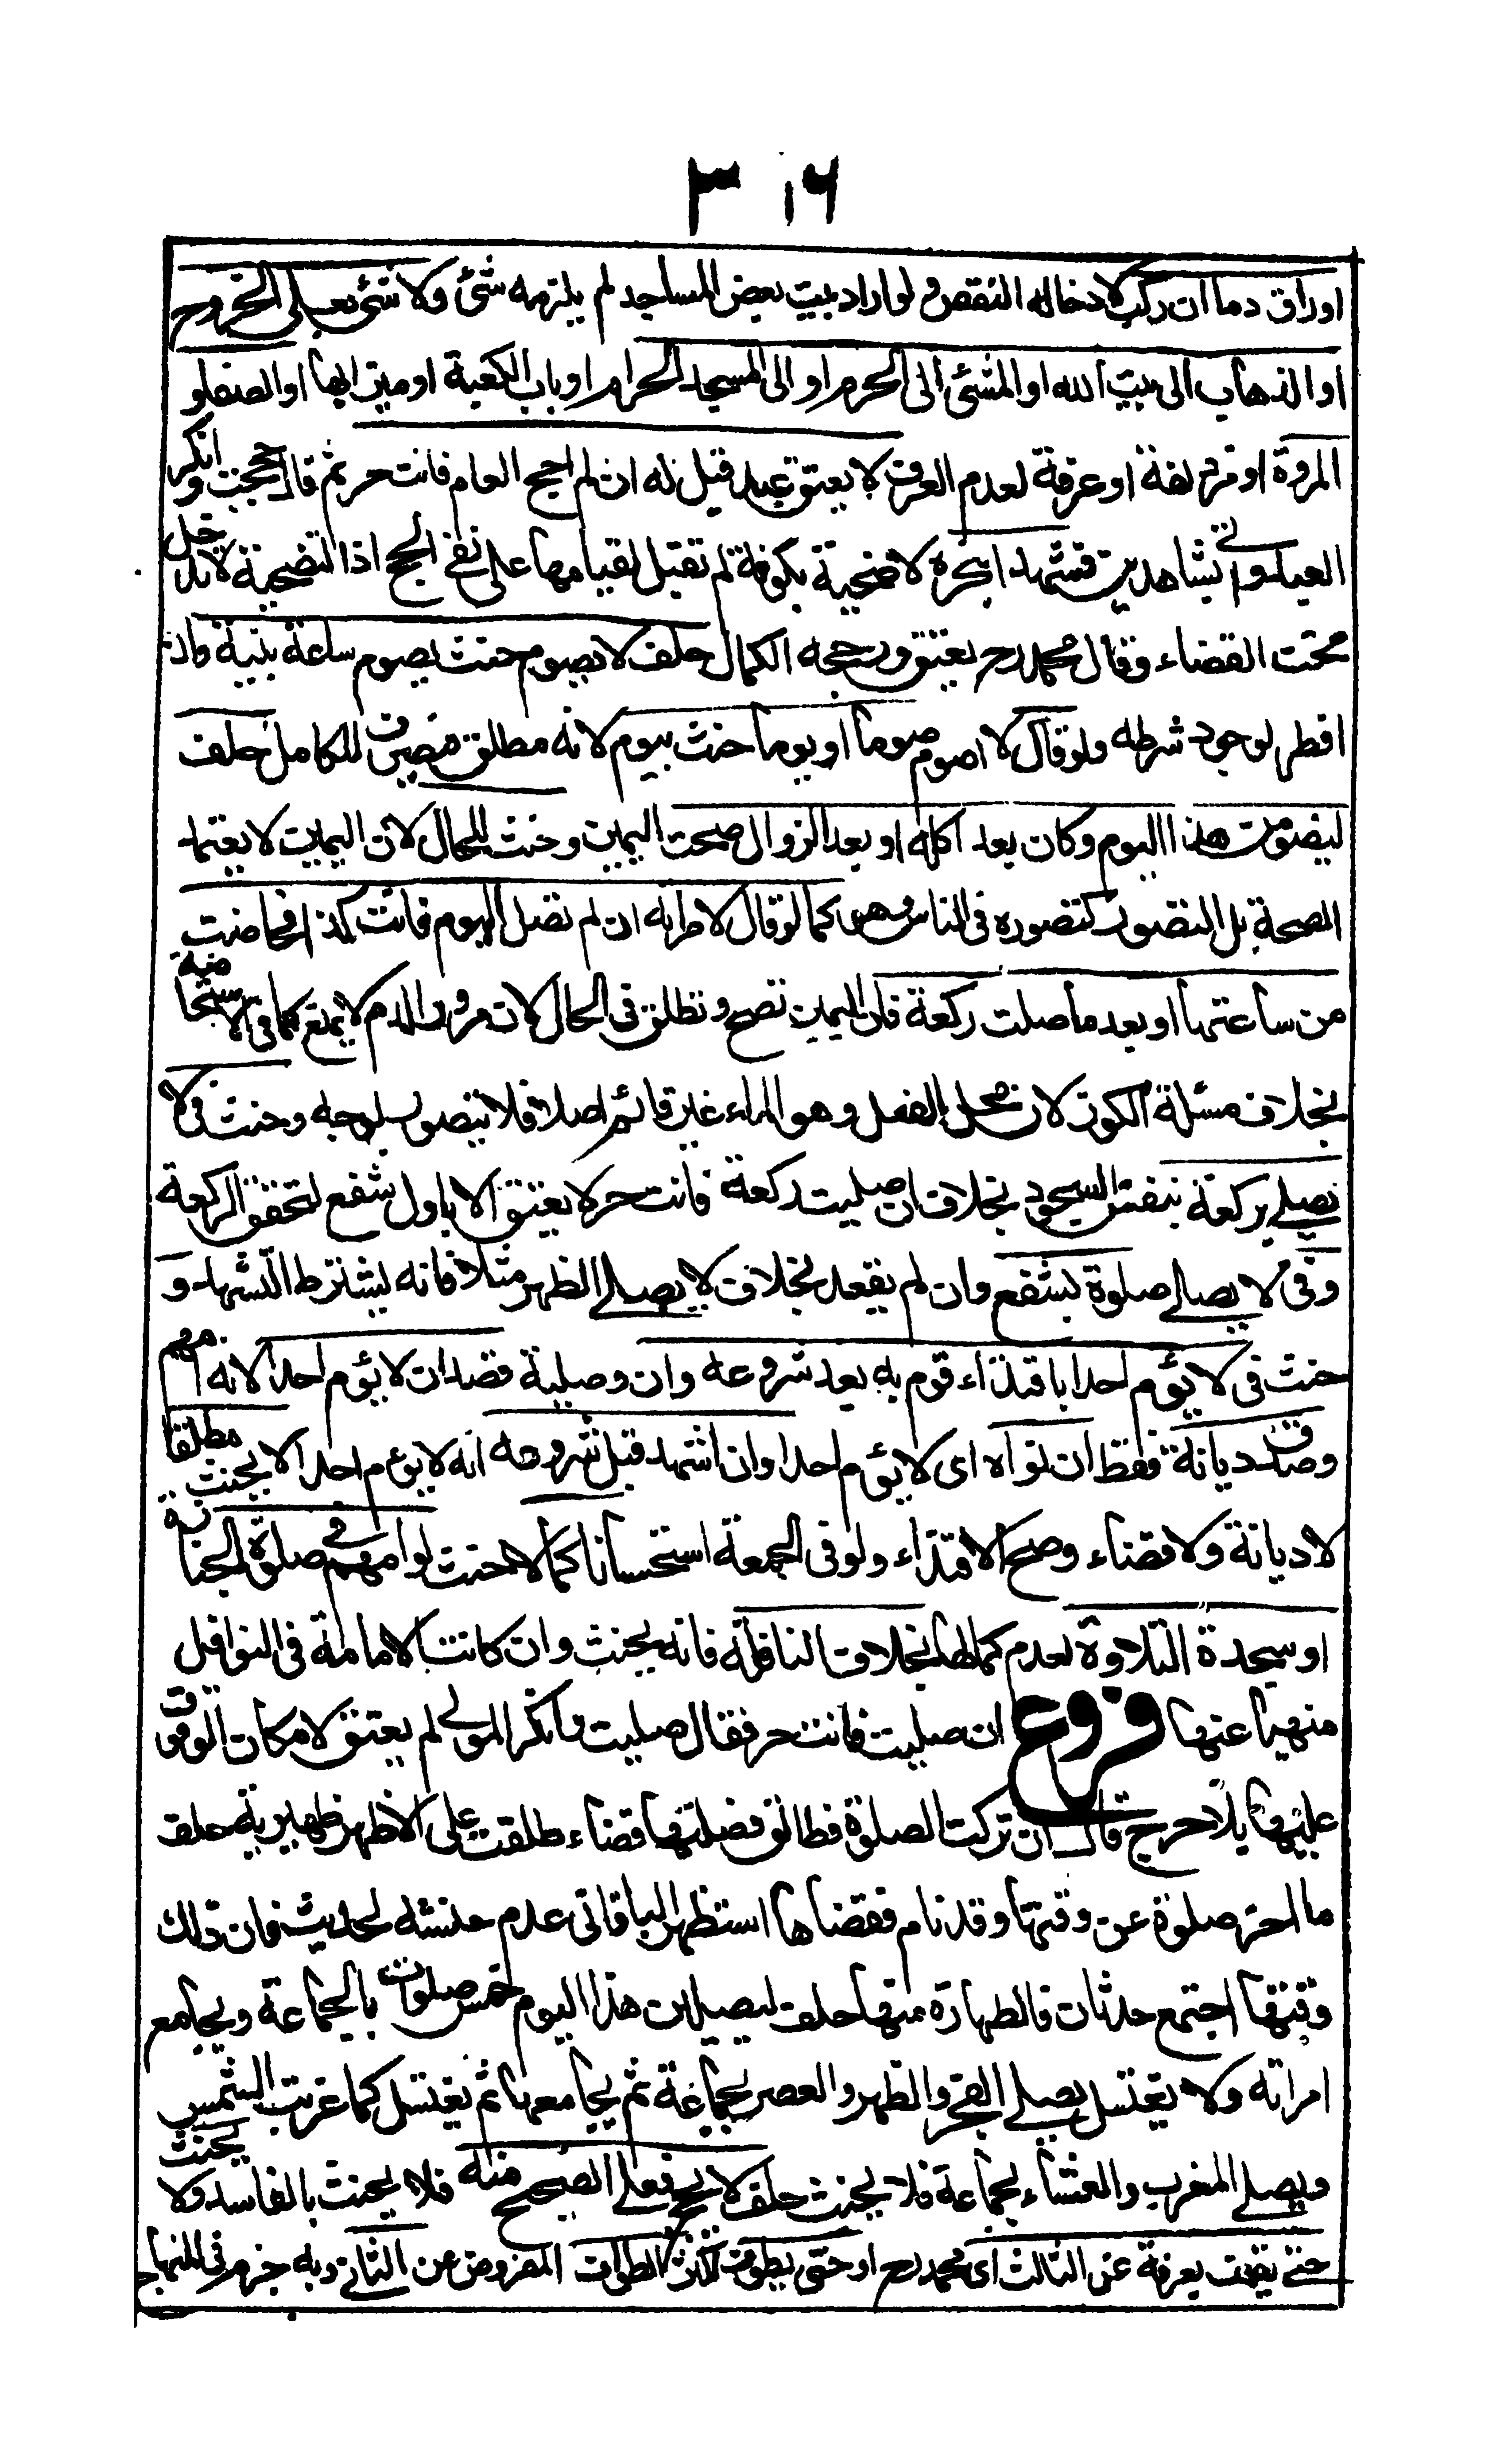 ٣١٦
اوراق دما ان ركب لادخاله النقص ولو اراد ببيت بعض المساجد لم يلزمه شئ ولا شئ بعلى الخروج
او الذهاب الى بيت الله او المشى الى الحرم او الى المسجد الحرام او باب الكعبة او ميزابها او الصفا او
المروة او مزدلفة او عرفة لعدم العرف لا يعتق عبد قيل له ان لم احج العام فانت حر ثم قال حججت وانكر
العبد واتى بشاهدين فشهدا بنحره لاضحية بكوفة لم تقبل لقيامها على نفى الحج اذ التضحية لا تدخل
تحت القضاء وقال محمد رح يعتق ورجحه الكمال حلف لا يصوم حنث بصوم ساعة بنية وان
افطر لوجود شرطه ولو قال لا اصوم صوما او يوما حنث بيوم لانه مطلق فيصرف للكامل حلف
ليصومن هذا اليوم وكان بعد اكله او بعد الزوال صحت اليمين وحنث للحال لان اليمين لا يعتمد
الصحة بل التصور كتصوره فى الناس وهو كما لو قال لامراته ان لم تصل اليوم فانت كذا فحاضت
من ساعتها او بعد ما صلت ركعة فان اليمين تصح وتطلق فى الحال لان درور الدم لا يمنع كما فى الاستحاضة
بخلاف مسئلة الكوز لان محل الفعل وهو الماء غير قائم اصلا فلا يتصور بوجه وحنث فى لا
يصلى بركعة بنفس السجود بخلاف ان صليت ركعة فانت حر لا يعتق الا باول شفع لتحقق الركعة
وفى لا يصلى صلوة بشفع وان لم يقعد بخلاف لا يصلى الظهر مثلا فانه يشترط التشهد و
حنث فى لا يؤم احدا باقتداء قوم به بعد شروعه وان وصلية قصد ان لا يؤم احدا لانه امهم
وصدق ديانة فقط ان نواه اى لا يؤم احدا وان اشهد قبل شروعه انه لا يؤم احدا لا يحنث مطلقا
لا ديانة ولا قضاء وصح الاقتداء ولو فى الجمعة استحسانا كما لا حنث لو امهم فى صلوة الجنازة
او سجدة التلاوة لعدم كمالها بخلاف النافلة فانه يحنث وان كانت الامامة فى النوافل
منهيا عنها فروع ان صليت فانت حر فقال صليت وانكر المولى لم يعتق لامكان الوقوف
عليها بلا حرج قال ان تركت الصلوة فطالق فصلتها قضاء طلقت على الاظهر ظهيرية حلف
ما اخر صلوة عن وقتها وقد نام فقضاها استظهر الباقانى عدم حنثه لحديث فان ذلك
وقتها اجتمع حدثان فالطهارة منهما حلف ليصلين هذا اليوم خمس صلوات بالجماعة ويجامع
امراته ولا يغتسل يصلى الفجر والظهر والعصر بجماعة ثم يجامعها ثم يغتسل كما غربت الشمس
ويصلى المغرب والعشاء بجماعة فلا يحنث حلف لا يحج فعلى الصحيح منه فلا يحنث بالفاسد ولا يحنث
حتى يقف بعرفة عن الثالث اى محمد رح او حتى يطوف اكثر الطواف المفروض عن الثانى وبه جزم فى المنهاج